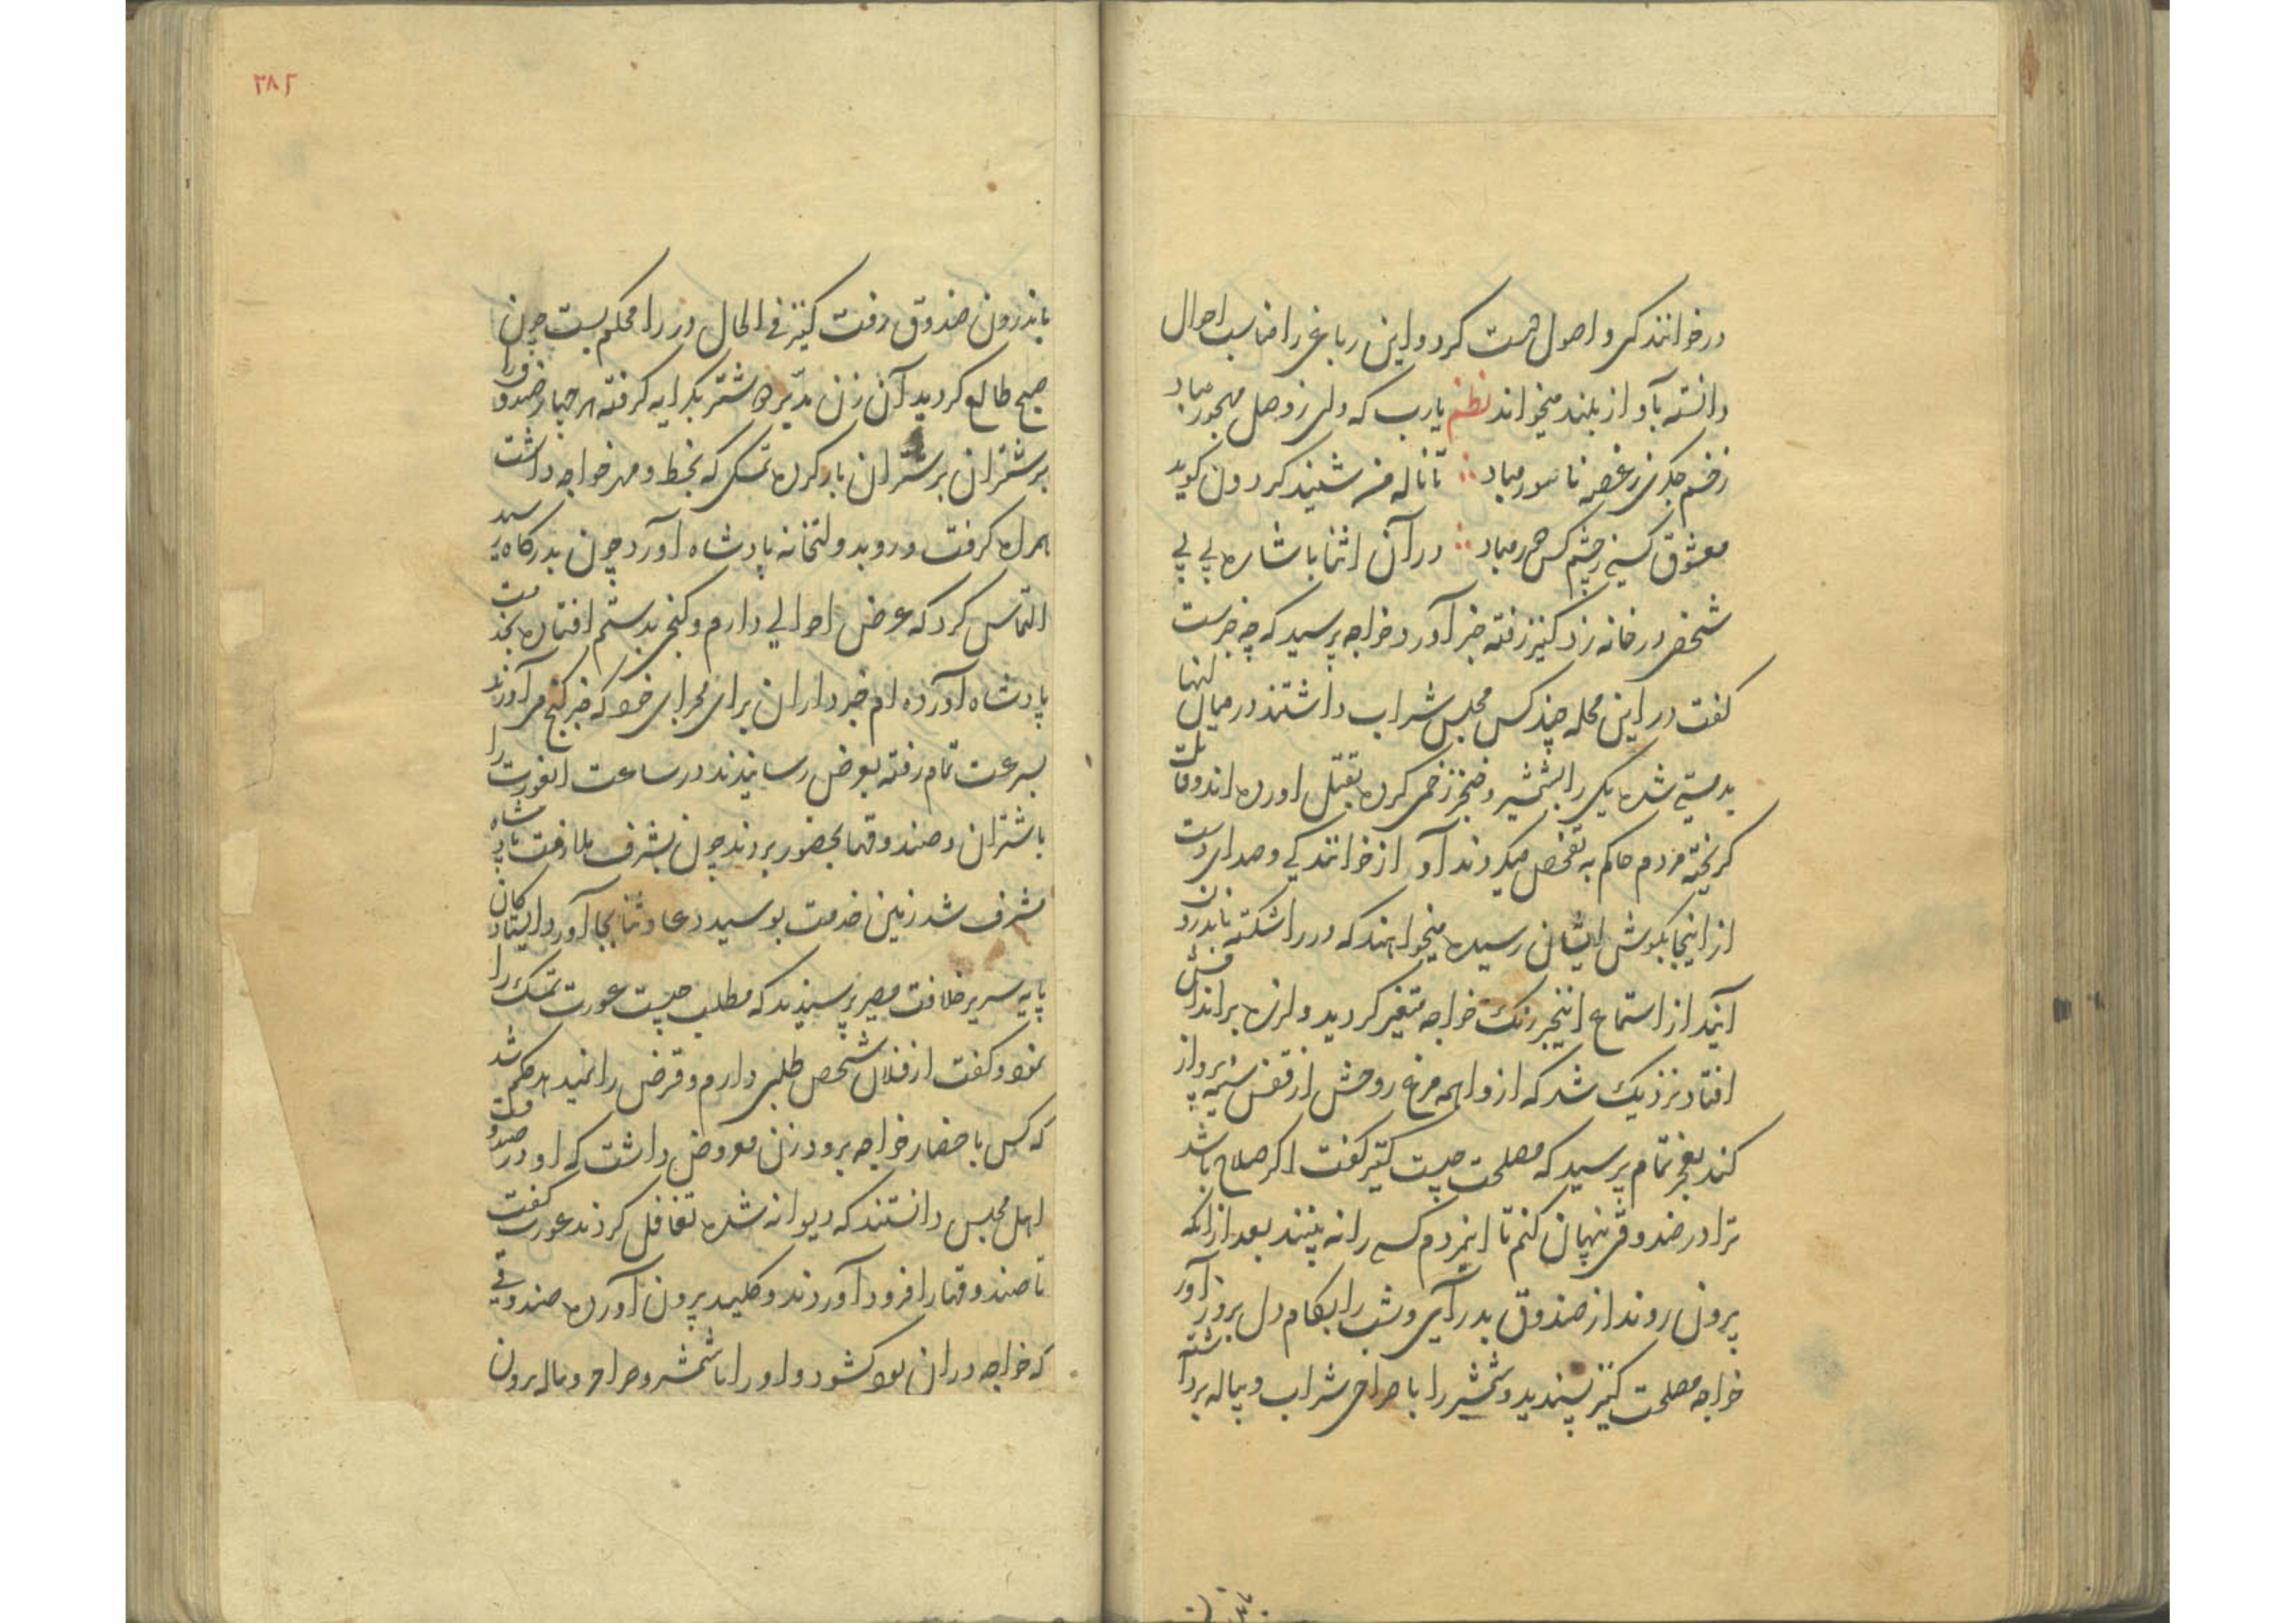 در خوانندکی و اصول همت کرد و این رباعی را مناسب احوال
دانسته بآواز بلند میخواند نظم یارب که دلی ز وصل مهجور مباد
زخم جکری ز غصه ناسور مباد تا ناله من شنید کردون کوید
معشوق کسی ز چشم کس دور مباد در آن اثنا باشاره بی بی
شخصی در خانه زد کنیز رفته خبر آورد خواجه پرسید که چه خبرست
کفت در این محله چند کس مجلس شراب داشتند در میان انها
بدمستی شده یکی را بشمشیر و خنجر زخمی کرده بقتل اورده اند و قاتلت
کریخته مردم حاکم به تفحص میکردند آواز خوانندکی و صدای دست
از اینجا بکوش ایشان رسیده میخواهند که در را شکسته باندرون
آیند از استماع اینخبر رنک خواجه متغیر کردید و لرزه بر اندامش
افتاد نزدیک شد که از واهمه مرغ روحش از قفس سینه پرواز
کند بعجز تمام پرسید که مصلحت چیست کنیز کفت اکر صلاح باشد
ترا در صندوقی پنهان کنم تا اینمردم کسی را نه بینند بعد از انکه
بیرون روند از صندوق بدر آی و شب را بکام دل بروز آور
خواجه مصلحت کنیز پسندید و شمشیر را با صراحی شراب و پیاله برداشته
۲۸۲
باندرون صندوق رفت کنیز فی الحال در را محکم بست چون
صبح طالع کردید آن زن مدبره شتر بکرایه کرفته هر چهار صندوق را
بر شتران بر شتران بار کرده تمسکی که بخط و مهر خواجه داشت
همراه کرفت و رو بدولتخانه پادشاه آورد چون بدرکاه رسید
التماس کرد که عرض احوالی دارم و کنجی بدستم افتاده بخدمت
پادشاه آورده ام خبرداران برای مجرای خود که خبر کنج می آورند
بسرعت تمام رفته بعرض رسانیدند در ساعت انعورت را
با شتران و صندوقها بحضور بردند چون بشرف ملازمت پادشاه
مشرف شد زمین خدمت بوسید دعا و ثنا بجا آورد ایستادکان
پایه سریر خلافت مصیر پرسیدند که مطلب چیست عورت تمسک را
نمود و کفت از فلان شخص طلبی دارم و قرض را نمیدهد حکم شد
که کس باحضار خواجه برود زن معروض داشت که او در صندوقست
اهل مجلس دانستند که دیوانه شده تغافل کردند عورت کفت
تا صندوقها را فرود آوردند و کلید بیرون آورده صندوقی
که خواجه در ان بود کشود و او را با شمشیر و صراحی و پیاله بیرون